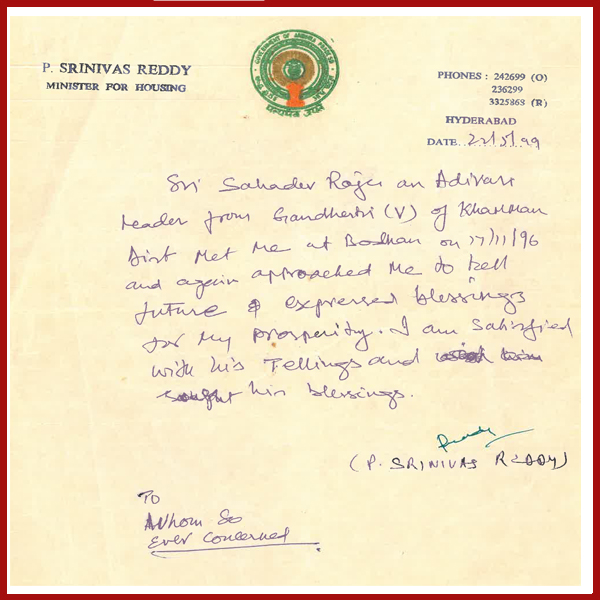 P. SRINIVAS REDDY
MINISTER FOR HOUSING
GOVERNMENT OF ANDHRA PRADESH
PHONES : 242699 (O)
236299
3325868 (R)
HYDERABAD
DATE 22/5/99
Sri Sahadev Raju an Adivasi
leader from (V) of Khammam
Dist Met Me at Bodhan on 17/11/96
and again approached Me to tell
future & expressed blessings
for my prosperity. I am Satisfied
with his Tellings and
sought his blessings.
Reddy
(P. SRINIVAS REDDY)
TO
Whom So
Ever Concerned.